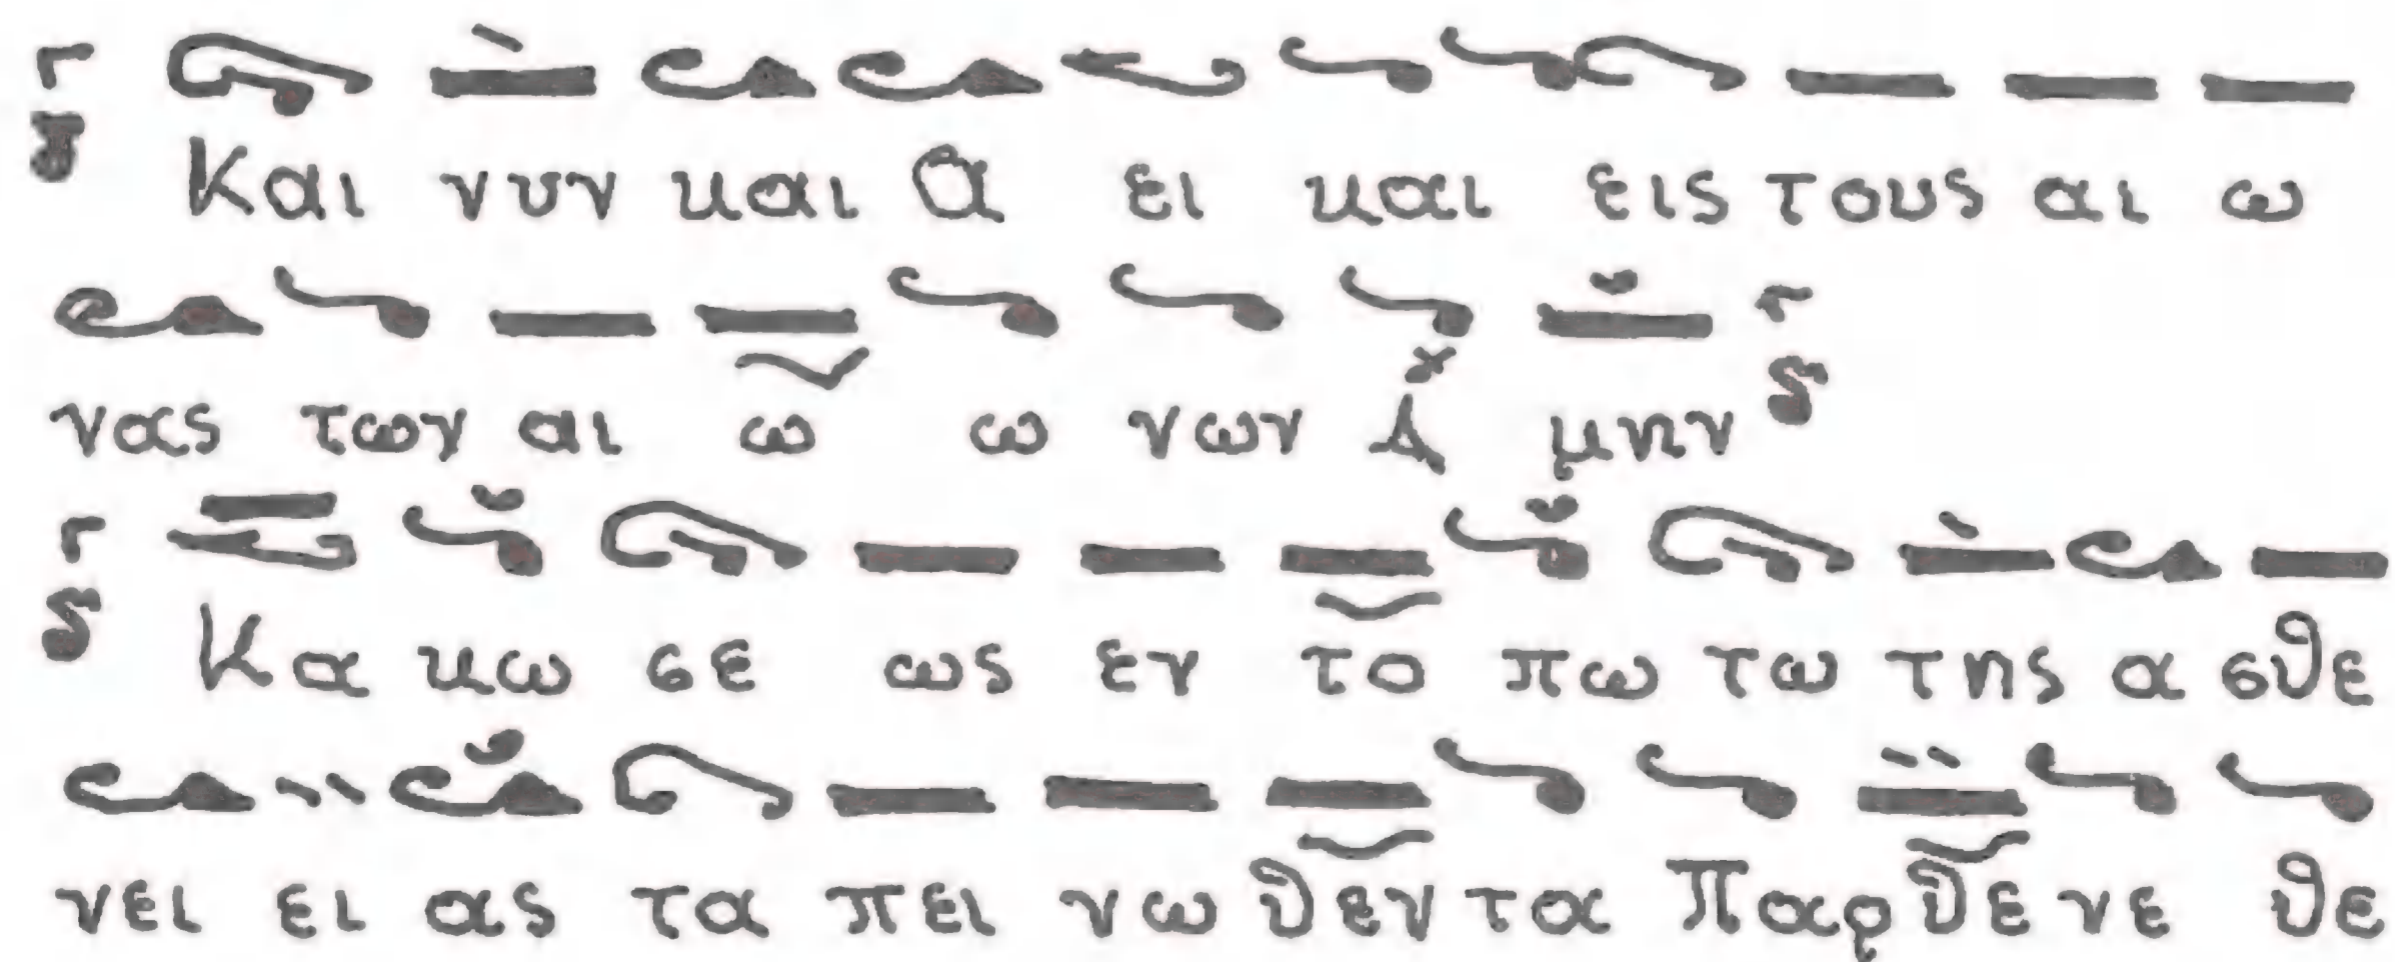 Και νυν και α ει και εις τους αι ω
νας των αι ω ω νων Α μην
Κα κω σε ως εν το πω τω της α σθε
νει ει ας τα πει νω θεν τα Παρ θε νε θε